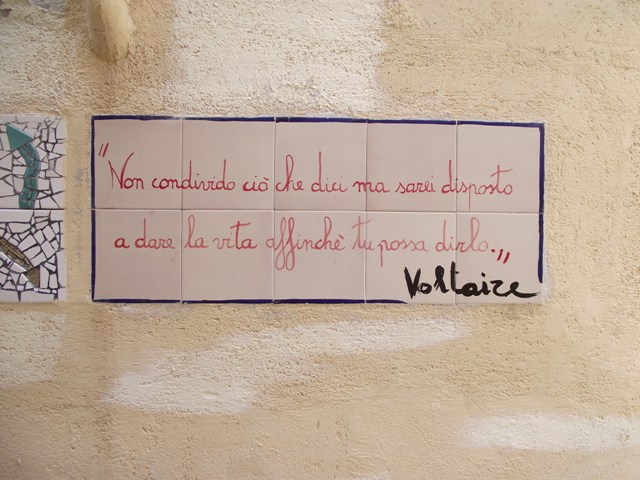 "Non condivido ciò che dici ma sarei disposto
a dare la vita affinchè tu possa dirlo.„
Voltaire